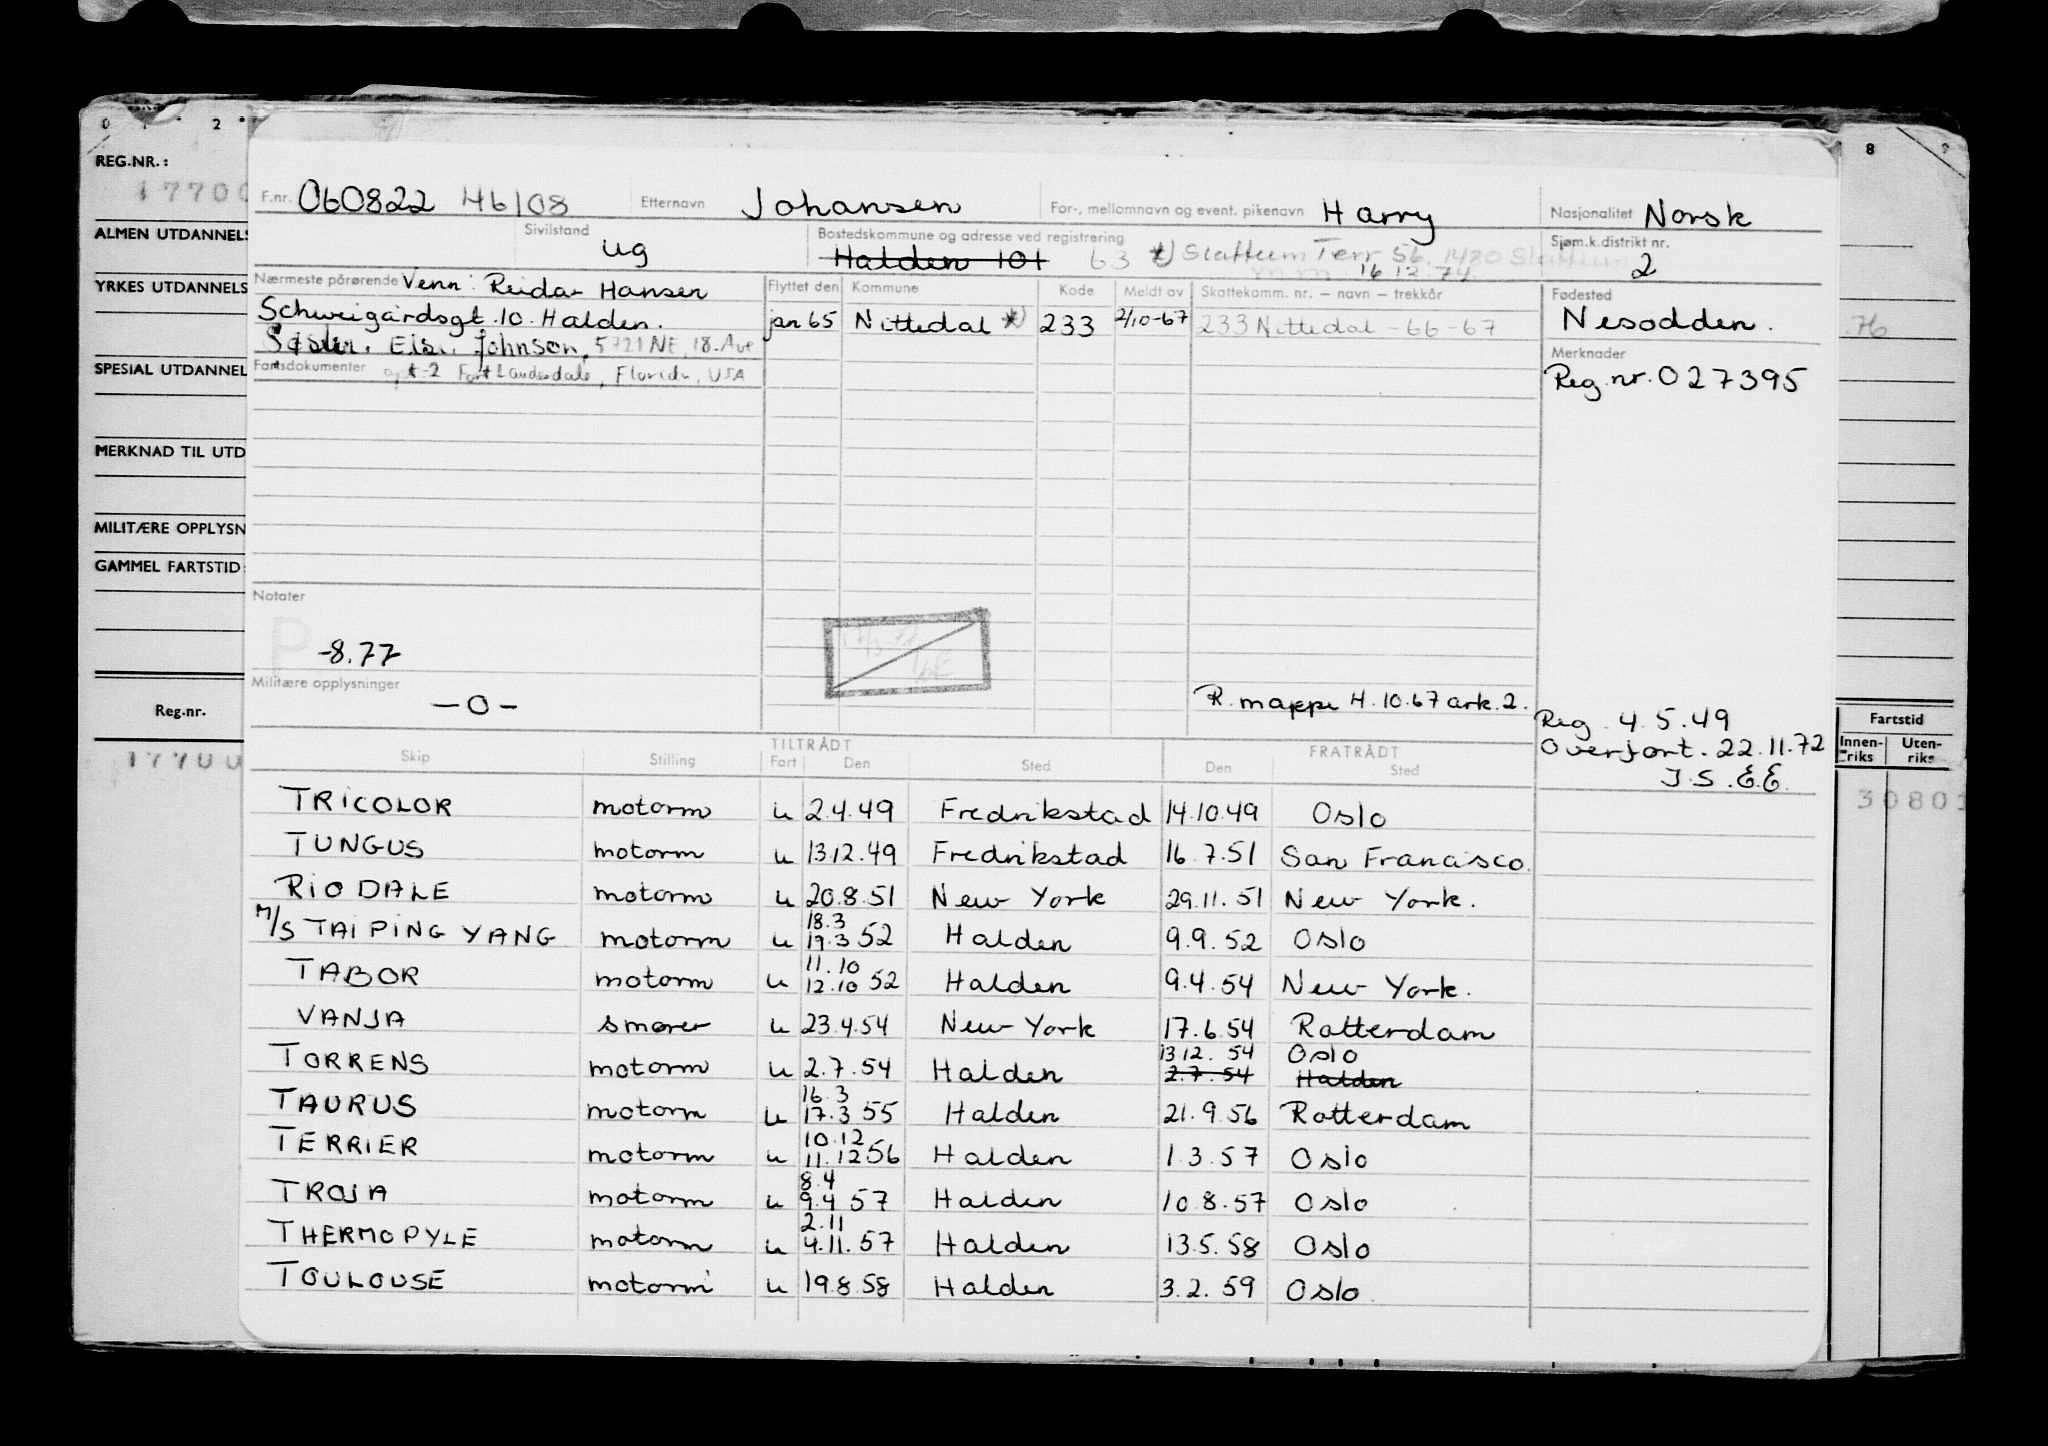 0 1 2 8 9
REG.NR.:
17700
ALMEN UTDANNELS
YRKES UTDANNELS
76
SPESIAL UTDANNEL
MERKNAD TIL UTD
MILITÆRE OPPLYSN
GAMMEL FARTSTID:
Reg.nr.
17700
Fartstid
Innen-riks Uten-riks
30801
F.nr. 060822 46108 Etternavn Johansen For-, mellomnavn og event. pikenavn Harry Nasjonalitet Norsk
Sivilstand ug Bostedskommune og adresse ved registrering Halden 101 63 *) Slattum Terr 56. 1480 Slattum Sjøm.k.distrikt nr. 2
16 12.74.
Nærmeste pårørende Venn: Reidar Hansen Flyttet den Kommune Kode Meldt av Skattekomm. nr. – navn – trekkår Fødested
Schweigårdsgt. 10. Halden. jan 65 Nittedal *) 233 2/10-67 233 Nittedal - 66 - 67 Nesodden.
Søster. Johnson, 5721 NE, 18. Ave Merknader
Fartsdokumenter apt-2 Fort Lauderdale, Florida, USA Reg.nr. 027395
Notater
P -8.77
Militære opplysninger
— 0 - R. mappe 4.10.67 ark.2.
Reg. 4.5.49
Overført. 22.11.72
J.S. E.E.
TILTRÅDT FRATRÅDT
Skip Stilling Fart Den Sted Den Sted
TRICOLOR motorm u 2.4.49 Fredrikstad 14.10.49 Oslo
TUNGUS motorm u 13.12.49 Fredrikstad 16.7.51 San Francisco.
RIO DALE motorm u 20.8.51 New York 29.11.51 New York.
M/S TAI PING YANG motorm u 18.3 19.3 52 Halden 9.9.52 Oslo
TABOR motorm u 11.10 12.10 52 Halden 9.4.54 New York.
VANJA smører u 23.4.54 New York 17.6.54 Rotterdam
TORRENS motorm u 2.7.54 Halden 13.12.54 Oslo
2.7.54 Halden
TAURUS motorm u 16.3 17.3 55 Halden 21.9.56 Rotterdam
TERRIER motorm u 10.12 11.12 56 Halden 1.3.57 Oslo
TROJA motorm u 8.4 9.4 57 Halden 10.8.57 Oslo
THERMOPYLE motorm u 2.11 4.11.57 Halden 13.5.58 Oslo
TOULOUSE motorm u 19.8.58 Halden 3.2.59 Oslo.